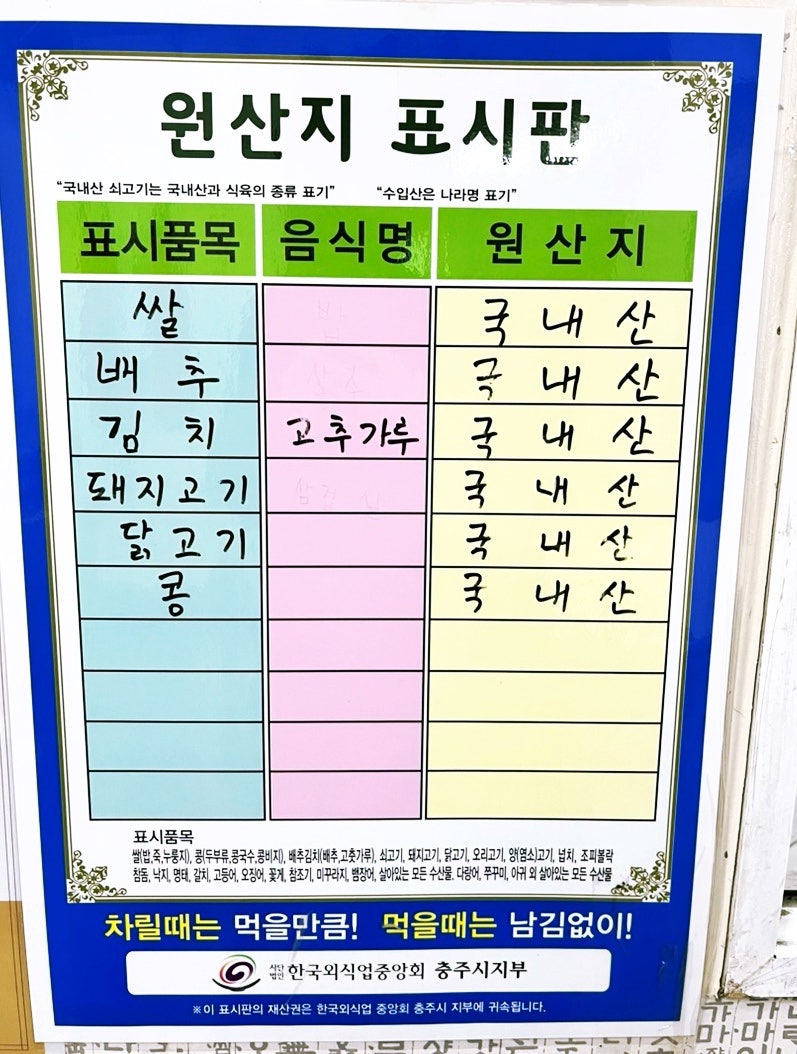 원산지 표시판
"국내산 쇠고기는 국내산과 식육의 종류 표기" "수입산은 나라명 표기"
표시품목 음식명 원산지
쌀 국내산
배추 국내산
김치 고추가루 국내산
돼지고기 국내산
닭고기 국내산
콩 국내산
표시품목
쌀(밥,죽,누룽지), 콩(두부류,콩국수,콩비지), 배추김치(배추,고춧가루), 쇠고기, 돼지고기, 닭고기, 오리고기, 양(염소)고기, 넙치, 조피볼락
참돔, 낙지, 명태, 갈치, 고등어, 오징어, 꽃게, 참조기, 미꾸라지, 뱀장어, 살아있는 모든 수산물, 다랑어, 쭈꾸미, 아귀 외 살아있는 모든 수산물
차릴때는 먹을만큼! 먹을때는 남김없이!
사단법인 한국외식업중앙회 충주시지부
※이 표시판의 재산권은 한국외식업 중앙회 충주시 지부에 귀속됩니다.